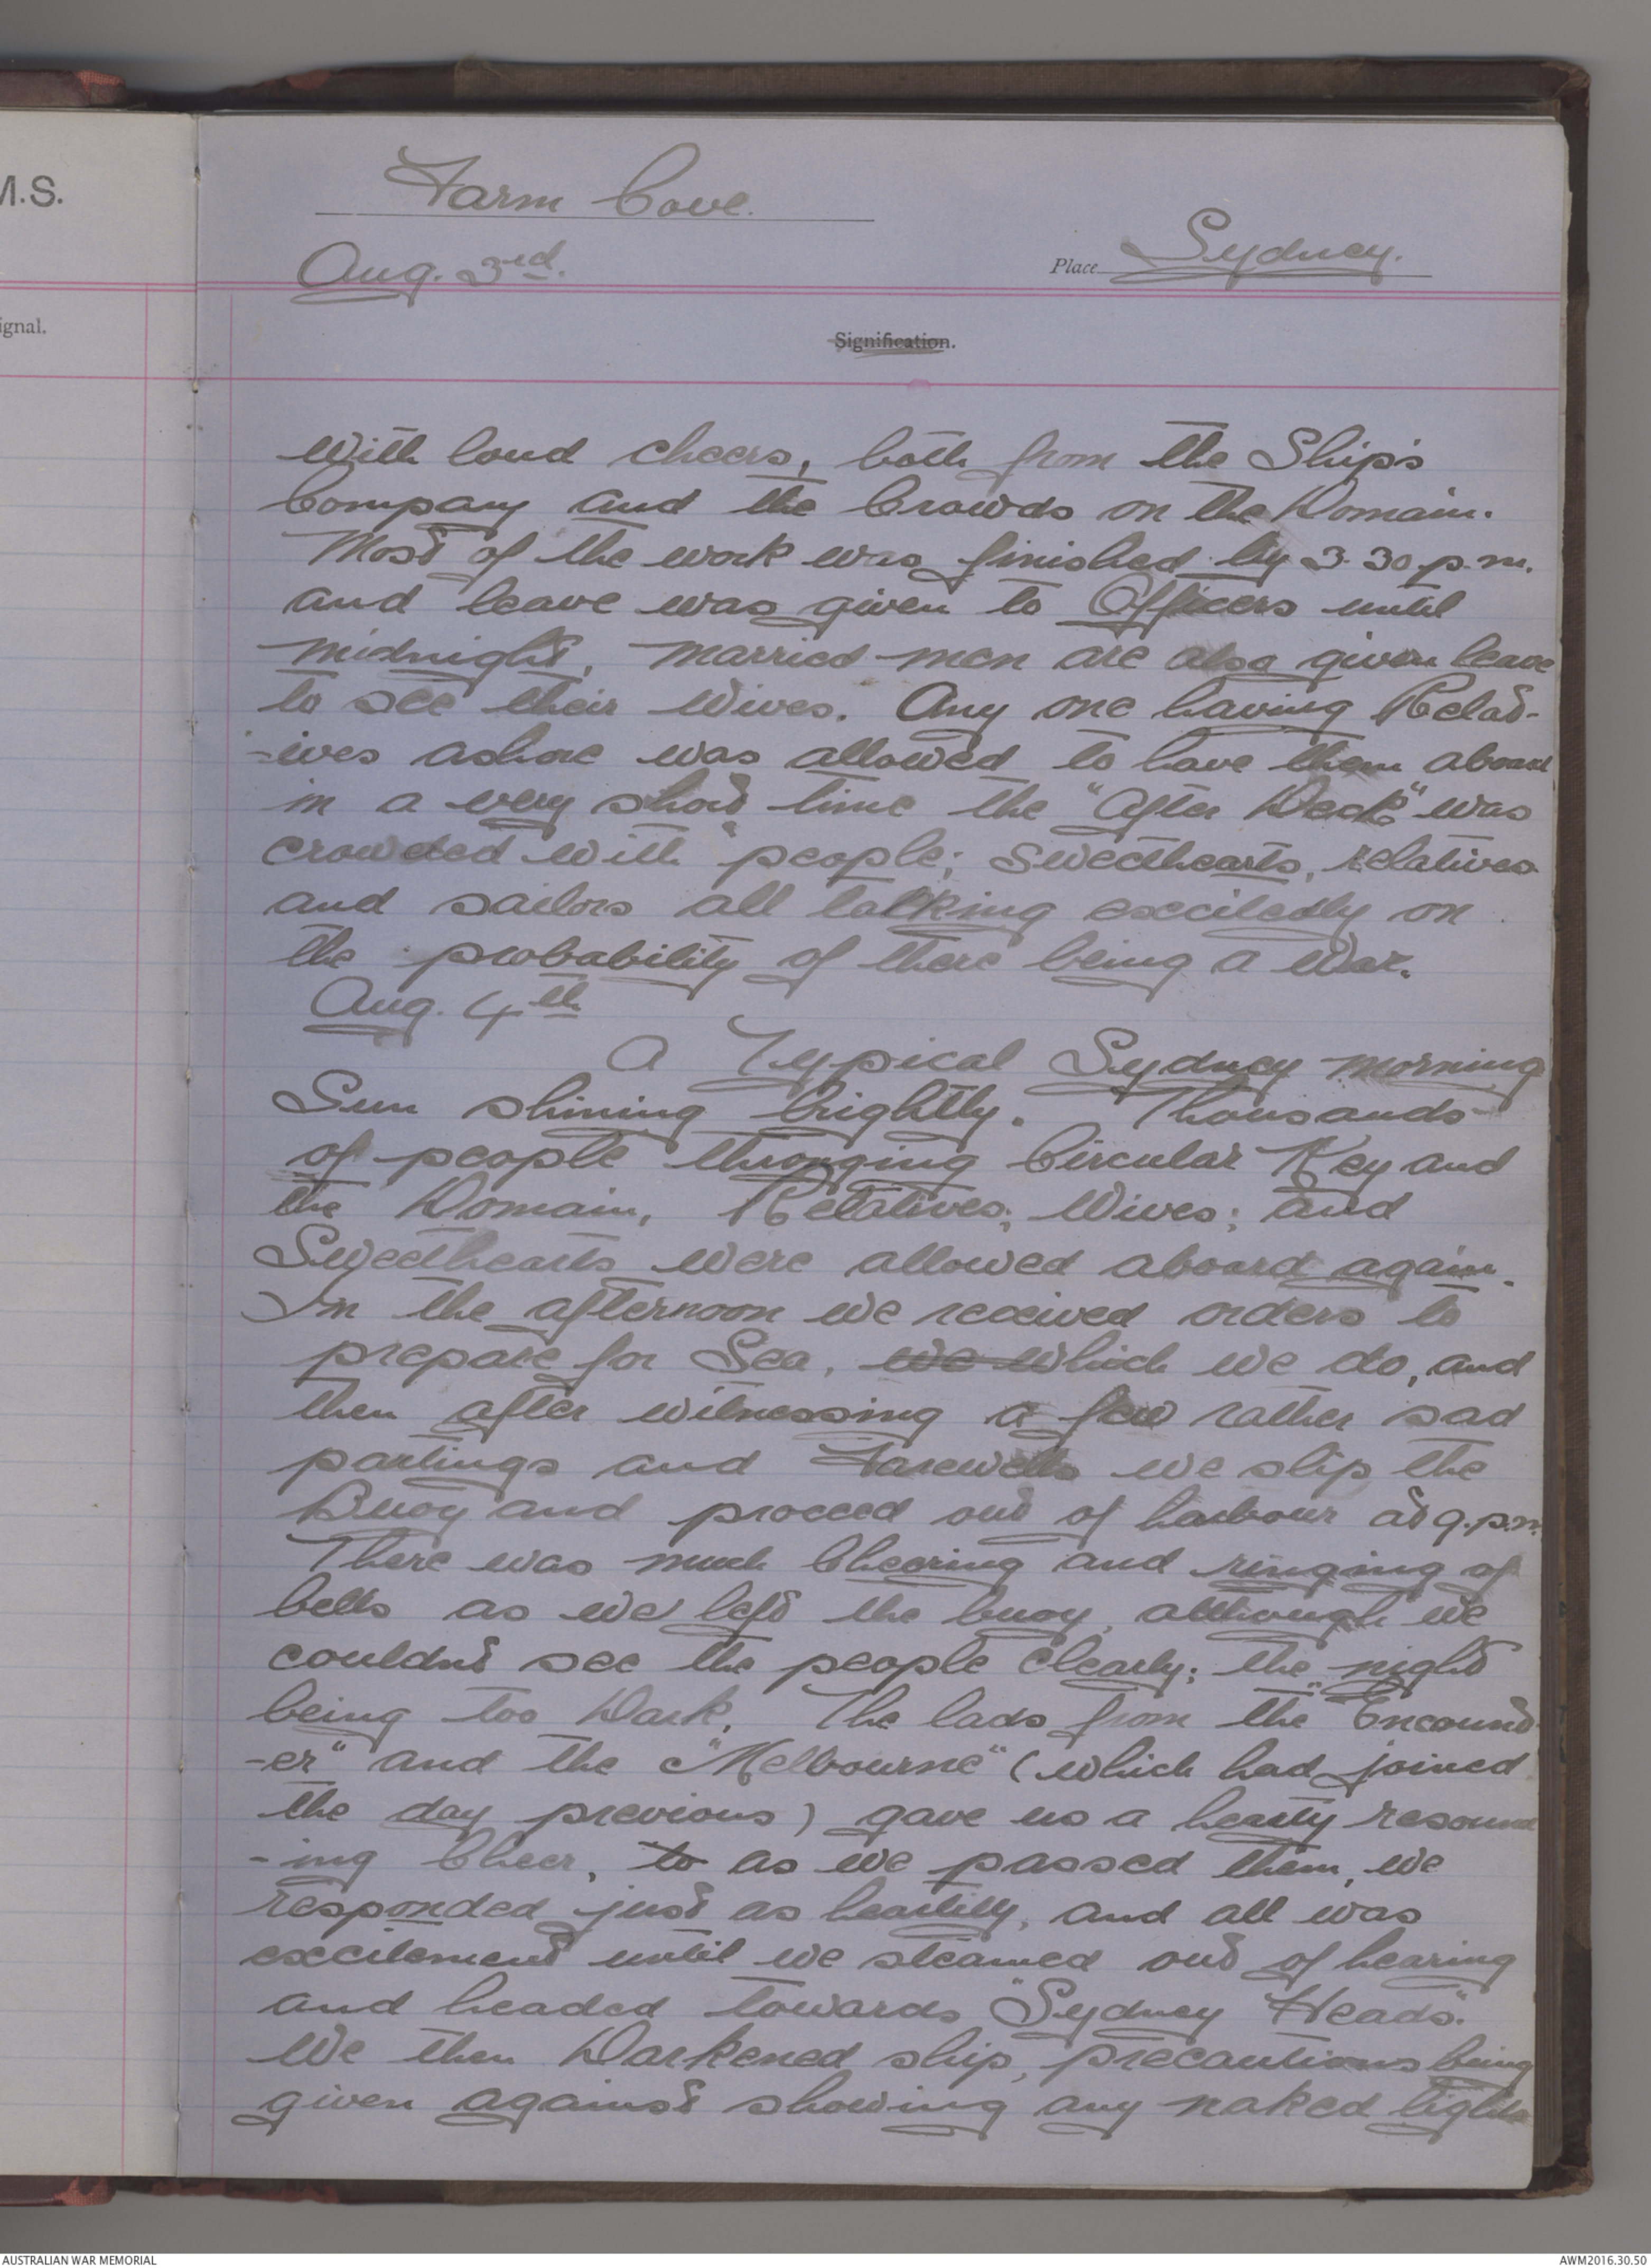 M.S.
ignal.
Farm Cove.
Aug. 3rd.
Place Sydney.
Signification.
With loud cheers, both from the Ship's
Company and the Crowds on the Domain.
Most of the work was finished by 3.30 p.m.
and leave was given to Officers until
midnight, married men are also given leave
to see their Wives. Any one having Relat-
-ives ashore was allowed to have them aboard
in a very short time the "After Deck" was
crowded with people; sweethearts, relatives
and sailors all talking excitedly on
the probability of there being a War.
Aug. 4th
A Typical Sydney morning
Sun shining brightly. Thousands
of people thronging Circular Key and
the Domain, Relatives; Wives; and
Sweethearts were allowed aboard again.
In the afternoon we received orders to
prepare for Sea, we which we do, and
then after witnessing a few rather sad
partings and Farewells we slip the
Buoy and proceed out of harbour at 9.p.m.
There was much Cheering and ringing of
bells as we left the buoy, although we
couldnt see the people clearly; the night
being too Dark. The lads from the "Encount-
-er" and the "Melbourne" (which had joined
the day previous) gave us a hearty resound
-ing Cheer, to as we passed them, we
responded just as heartilly, and all was
excitement until we steamed out of hearing
and headed towards "Sydney Heads".
We then Darkened ship, precautions being
given against showing any naked lights
AUSTRALIAN WAR MEMORIAL
AWM2016.30.50